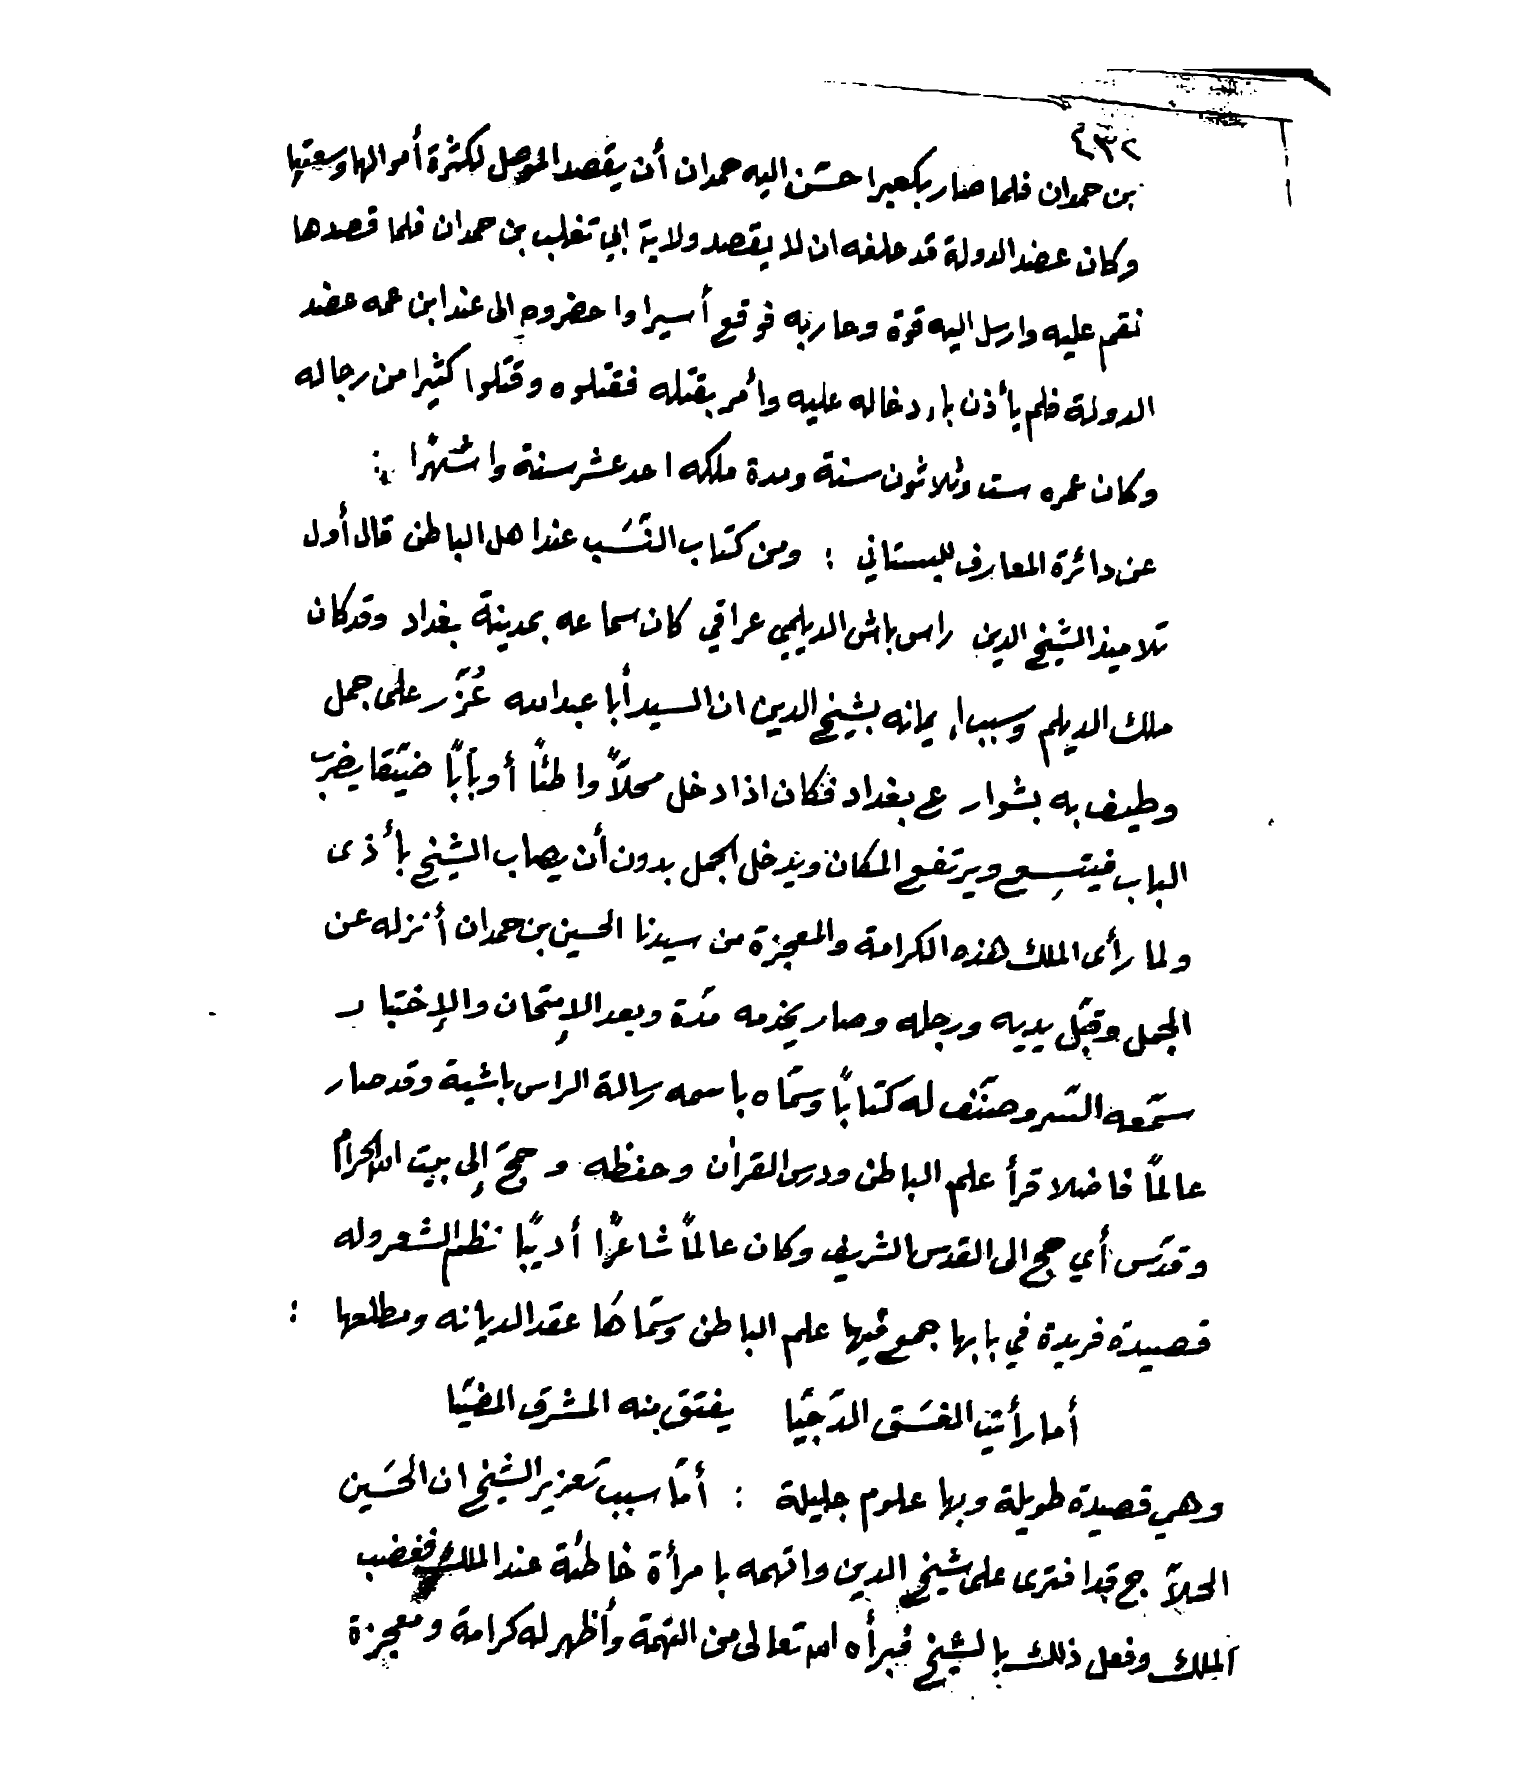 ٤٣٢
بن حمدان فلما صار بكعبرا حسّن اليه حمدان أن يقصد الموصل لكثرة أموالها وسعتها
وكان عضد الدولة قد حلفه ان لا يقصد ولاية ابي تغلب بن حمدان فلما قصدها
نقم عليه وارسل اليه قوة وحاربه فوقع أسيرا واحضروه الى عند ابن عمه عضد
الدولة فلم يأذن بإدخاله عليه وأمر بقتله فقتلوه وقتلوا كثيرا من رجاله
وكان عمره ست وثلاثون سنة ومدة ملكه احد عشر سنة واشهرًا :
عن دائرة المعارف للبستاني : ومن كتاب النّسَب عند اهل الباطن قال أول
تلاميذ الشيخ الدين راس باش الديلمي عراقي كان سماعه بمدينة بغداد وقد كان
ملك الديلم وسبب إيمانه بشيخ الدين ان السيد أبا عبد الله عُزّر على جمل
وطيف به بشوارع بغداد فكان اذا دخل محلاً واطئًا أو بابًا ضيّقا يضرب
الباب فيتسع ويرتفع المكان ويدخل الجمل بدون أن يصاب الشيخ بأذى
ولما رأى الملك هذه الكرامة والمعجزة من سيدنا الحسين بن حمدان أنزله عن
الجمل وقبّل يديه ورجله وصار يخدمه مدّة وبعد الإمتحان والإختبار
سمّعه السّر وصنّف له كتابًا وسمّاه باسمه رسالة الراس باشية وقد صار
عالمًا فاضلا قرأ علم الباطن ودرس القرأن وحفظه وحجّ إلى بيت الله الحرام
وقدّس أي حج الى القدس الشريف وكان عالمًا شاعرًا أديبًا نظم الشعر وله
قصيدة فريدة في بابها جمع فيها علم الباطن وسمّاها عقد الديانه ومطلعها :
أما رأيت الغسَق الدّجيّا يفتق منه المشرق المضيّا
وهي قصيدة طويلة وبها علوم جليلة : أمّا سبب تعزير الشيخ ان الحسَين
الحلاّج قد افترى على شيخ الدين واتهمه بامرأة خاطئة عند الملك فغضب
الملك وفعل ذلك بالشيخ فبرأه الله تعالى من التهمة وأظهر له كرامة ومعجزة